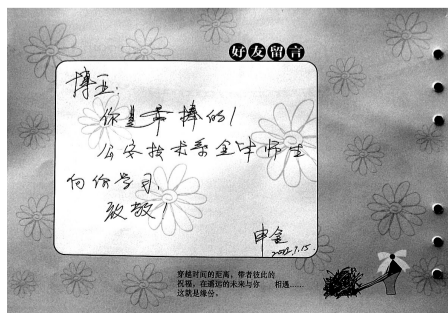 好友留言
博亚:
你是最棒的!
公安技术系全体师生
向你学习,
致敬!
申金
2012.9.15.
穿越时间的距离,带着彼此的
祝福,在遥远的未来与你 相遇……
这就是缘份。